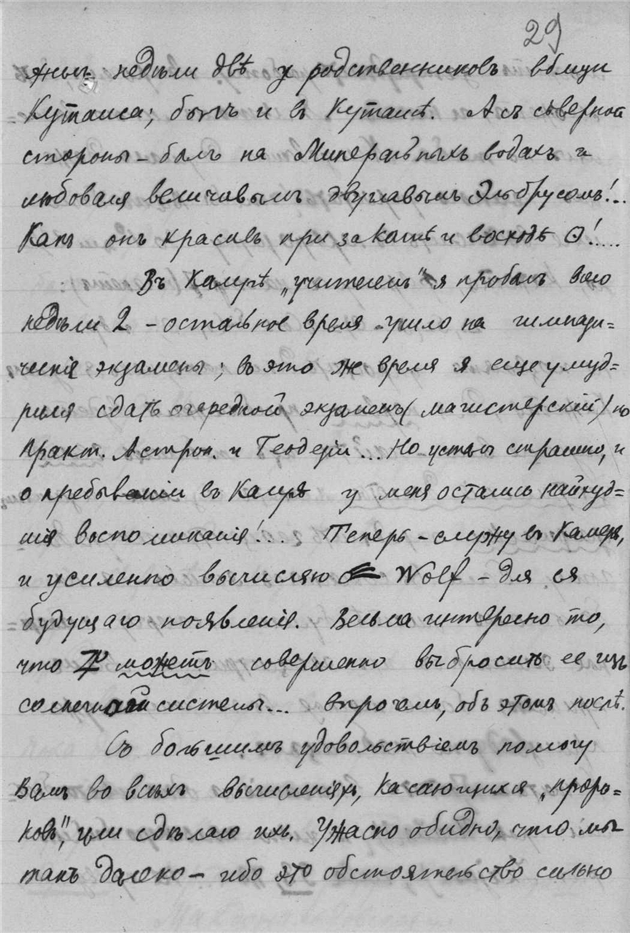 29
жилъ недѣли двѣ у родственниковъ вблизи
Кутаиса; былъ и въ Кутаисѣ. А съ сѣверной
стороны – былъ на Минеральныхъ водахъ и
любовался величавымъ двуглавымъ Эльбрусомъ!..
Какъ онъ красивъ при закатѣ и восходѣ ⊙!....
Въ „учителемъ“ я пробылъ всего
недѣли 2 – остальное время ушло на гимнази-
ческіе экзамены; въ это же время я еще умуд=
рился сдать очередной экзаменъ (магистерскій) по
Практ. Астрон. и Геодезіи... Но усталъ страшно, и
о пребываніи въ у меня остались найхуд=
шія воспоминанія!... Теперь – сижу въ
и усиленно вычисляю Wolf – для ея
будущаго появленія. Весьма интересно то,
что ♃ можетъ совершенно выбросить ее изъ
солнечной системы... впрочемъ, объ этомъ послѣ.
Съ большимъ удовольствіемъ помогу
Вамъ во всѣхъ вычисленіяхъ, касающихся „проро-
ковъ“, или сдѣлаю ихъ. Ужасно обидно, что мы
такъ далеко – ибо это обстоятельство сильно